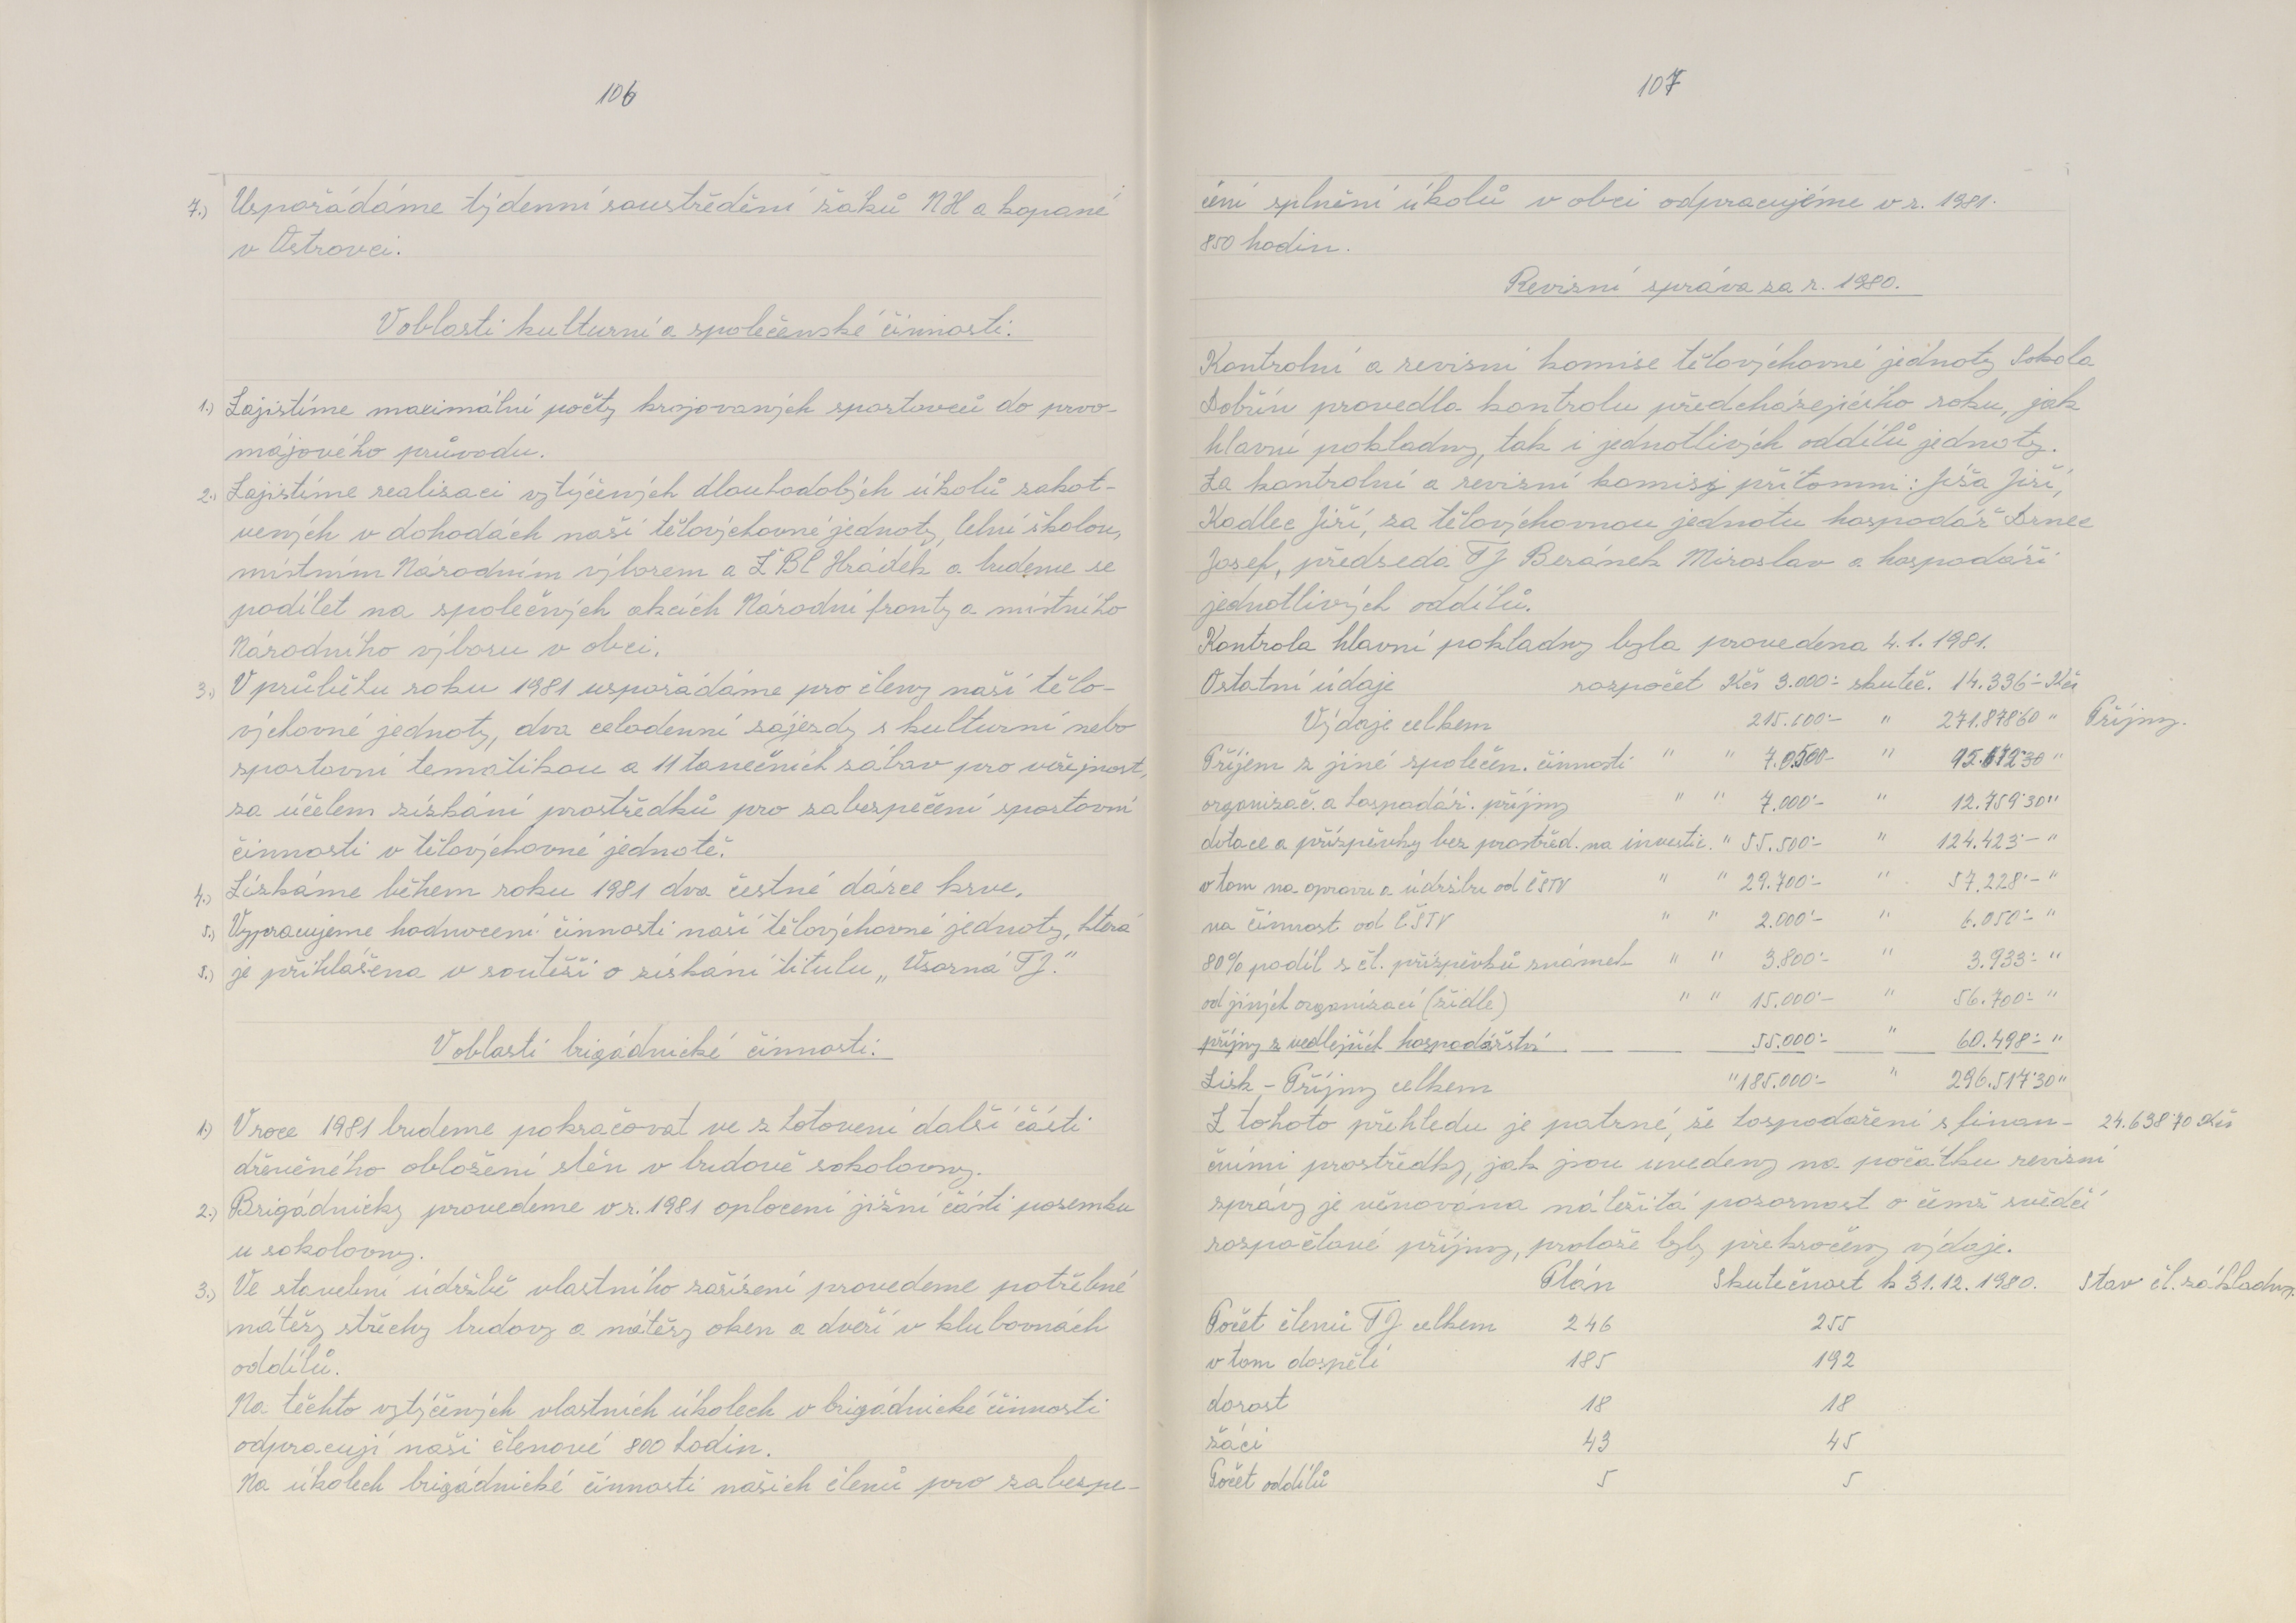 106
7.) Uspořádáme týdenní soustředění žáků NH a kopané
v Ostrovci.
V oblasti kulturní a společenské činnosti.
1.) Zajistíme maximální počty krojovaných sportovců do prvo-
májového průvodu.
2.) Zajistíme realisaci vytýčených dlouhodobých úkolů zakot-
vených v dohodách naší tělovýchovné jednoty, letní školou,
místním Národním výborem a ZBČ Hrádek a budeme se
podílet na společných akcích Národní fronty a místního
Národního výboru v obci.
3.) V průběhu roku 1981 uspořádáme pro členy naší tělo-
výchovné jednoty, dva celodenní zájezdy s kulturní nebo
sportovní tematikou a 11 tanečních zábav pro veřejnost,
za účelem získání prostředků pro zabezpečení sportovní
činnosti v tělovýchovné jednotě.
4.) Získáme během roku 1981 dva čestné dárce krve.
5.) Vypracujeme hodnocení činnosti naší tělovýchovné jednoty, která
5.) je přihlášena v soutěži o získání titulu „Vzorná TJ."
V oblasti brigádnické činnosti.
1.) V roce 1981 budeme pokračovat ve zhotovení další části
dřevěného obložení stěn v budově sokolovny.
2.) Brigádnicky provedeme v r. 1981 oplocení jižní části pozemku
u sokolovny.
3.) Ve stavební údržbě vlastního zařízení provedeme potřebné
nátěry střechy budovy a nátěry oken a dveří v klubovnách
oddílů.
Na těchto vytýčených vlastních úkolech v brigádnické činnosti
odpracují naši členové 800 hodin.
Na úkolech brigádnické činnosti našich členů pro zabezpe-
107
čení splnění úkolů v obci odpracujeme v r. 1981.
850 hodin.
Revizní správa za r. 1980.
Kontrolní a revizní komise tělovýchovné jednoty Sokola
Dobřín provedla kontrolu předcházejícího roku, jak
hlavní pokladny, tak i jednotlivých oddílů jednoty.
Za kontrolní a revizní komisi přítomni: Jíša Jiří,
Kadlec Jiří, za tělovýchovnou jednotu hospodář Drnec
Josef, předseda TJ Beránek Miroslav a hospodáři
jednotlivých oddílů.
Kontrola hlavní pokladny byla provedena 4.1.1981.
Ostatní údaje rozpočet Kčs 3.000:- skuteč. 14.336:- Kčs
Výdaje celkem 215.600:- " 271.878'60 " Příjmy.
Příjem z jiné společen. činnosti " " 7.0500- " 95.672'30 "
organizač. a hospodář. příjmy " " 7.000:- " 12.759'30 "
dotace a příspěvky bez prostřed. na investic. " 55.500:- " 124.423:- "
v tom na opravu a údržbu od ČSTV " " 29.700:- " 57.228:- "
na činnost od ČSTV " " 2.000:- " 6.050:- "
80% podíl z čl. příspěvků známek " " 3.800:- " 3.933:- "
od jiných organizací (židle) " " 15.000:- " 56.700:- "
příjmy z vedlejších hospodářství 55.000:- " 60.498:- "
Zisk - Příjmy celkem " 185.000:- " 296.517'30 "
Z tohoto přehledu je patrné, že hospodaření s finan- 24.638'70 Kčs
čními prostředky, jak jsou uvedeny na počátku revizní
správy je věnována náležitá pozornost o čemž svědčí
rozpočtové příjmy, protože byly překročeny výdaje.
Plán Skutečnost k 31.12.1980. Stav čl. základny.
Počet členů TJ celkem 246 255
v tom dospělí 185 192
dorost 18 18
žáci 43 45
Počet oddílů 5 5